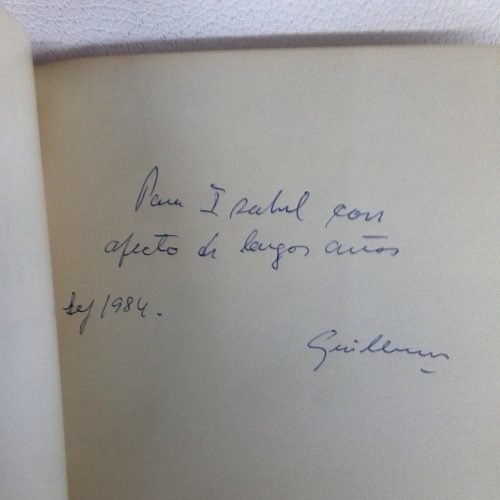 Para Isabel con
afecto de largos años
Sej 1984.
Guillermo